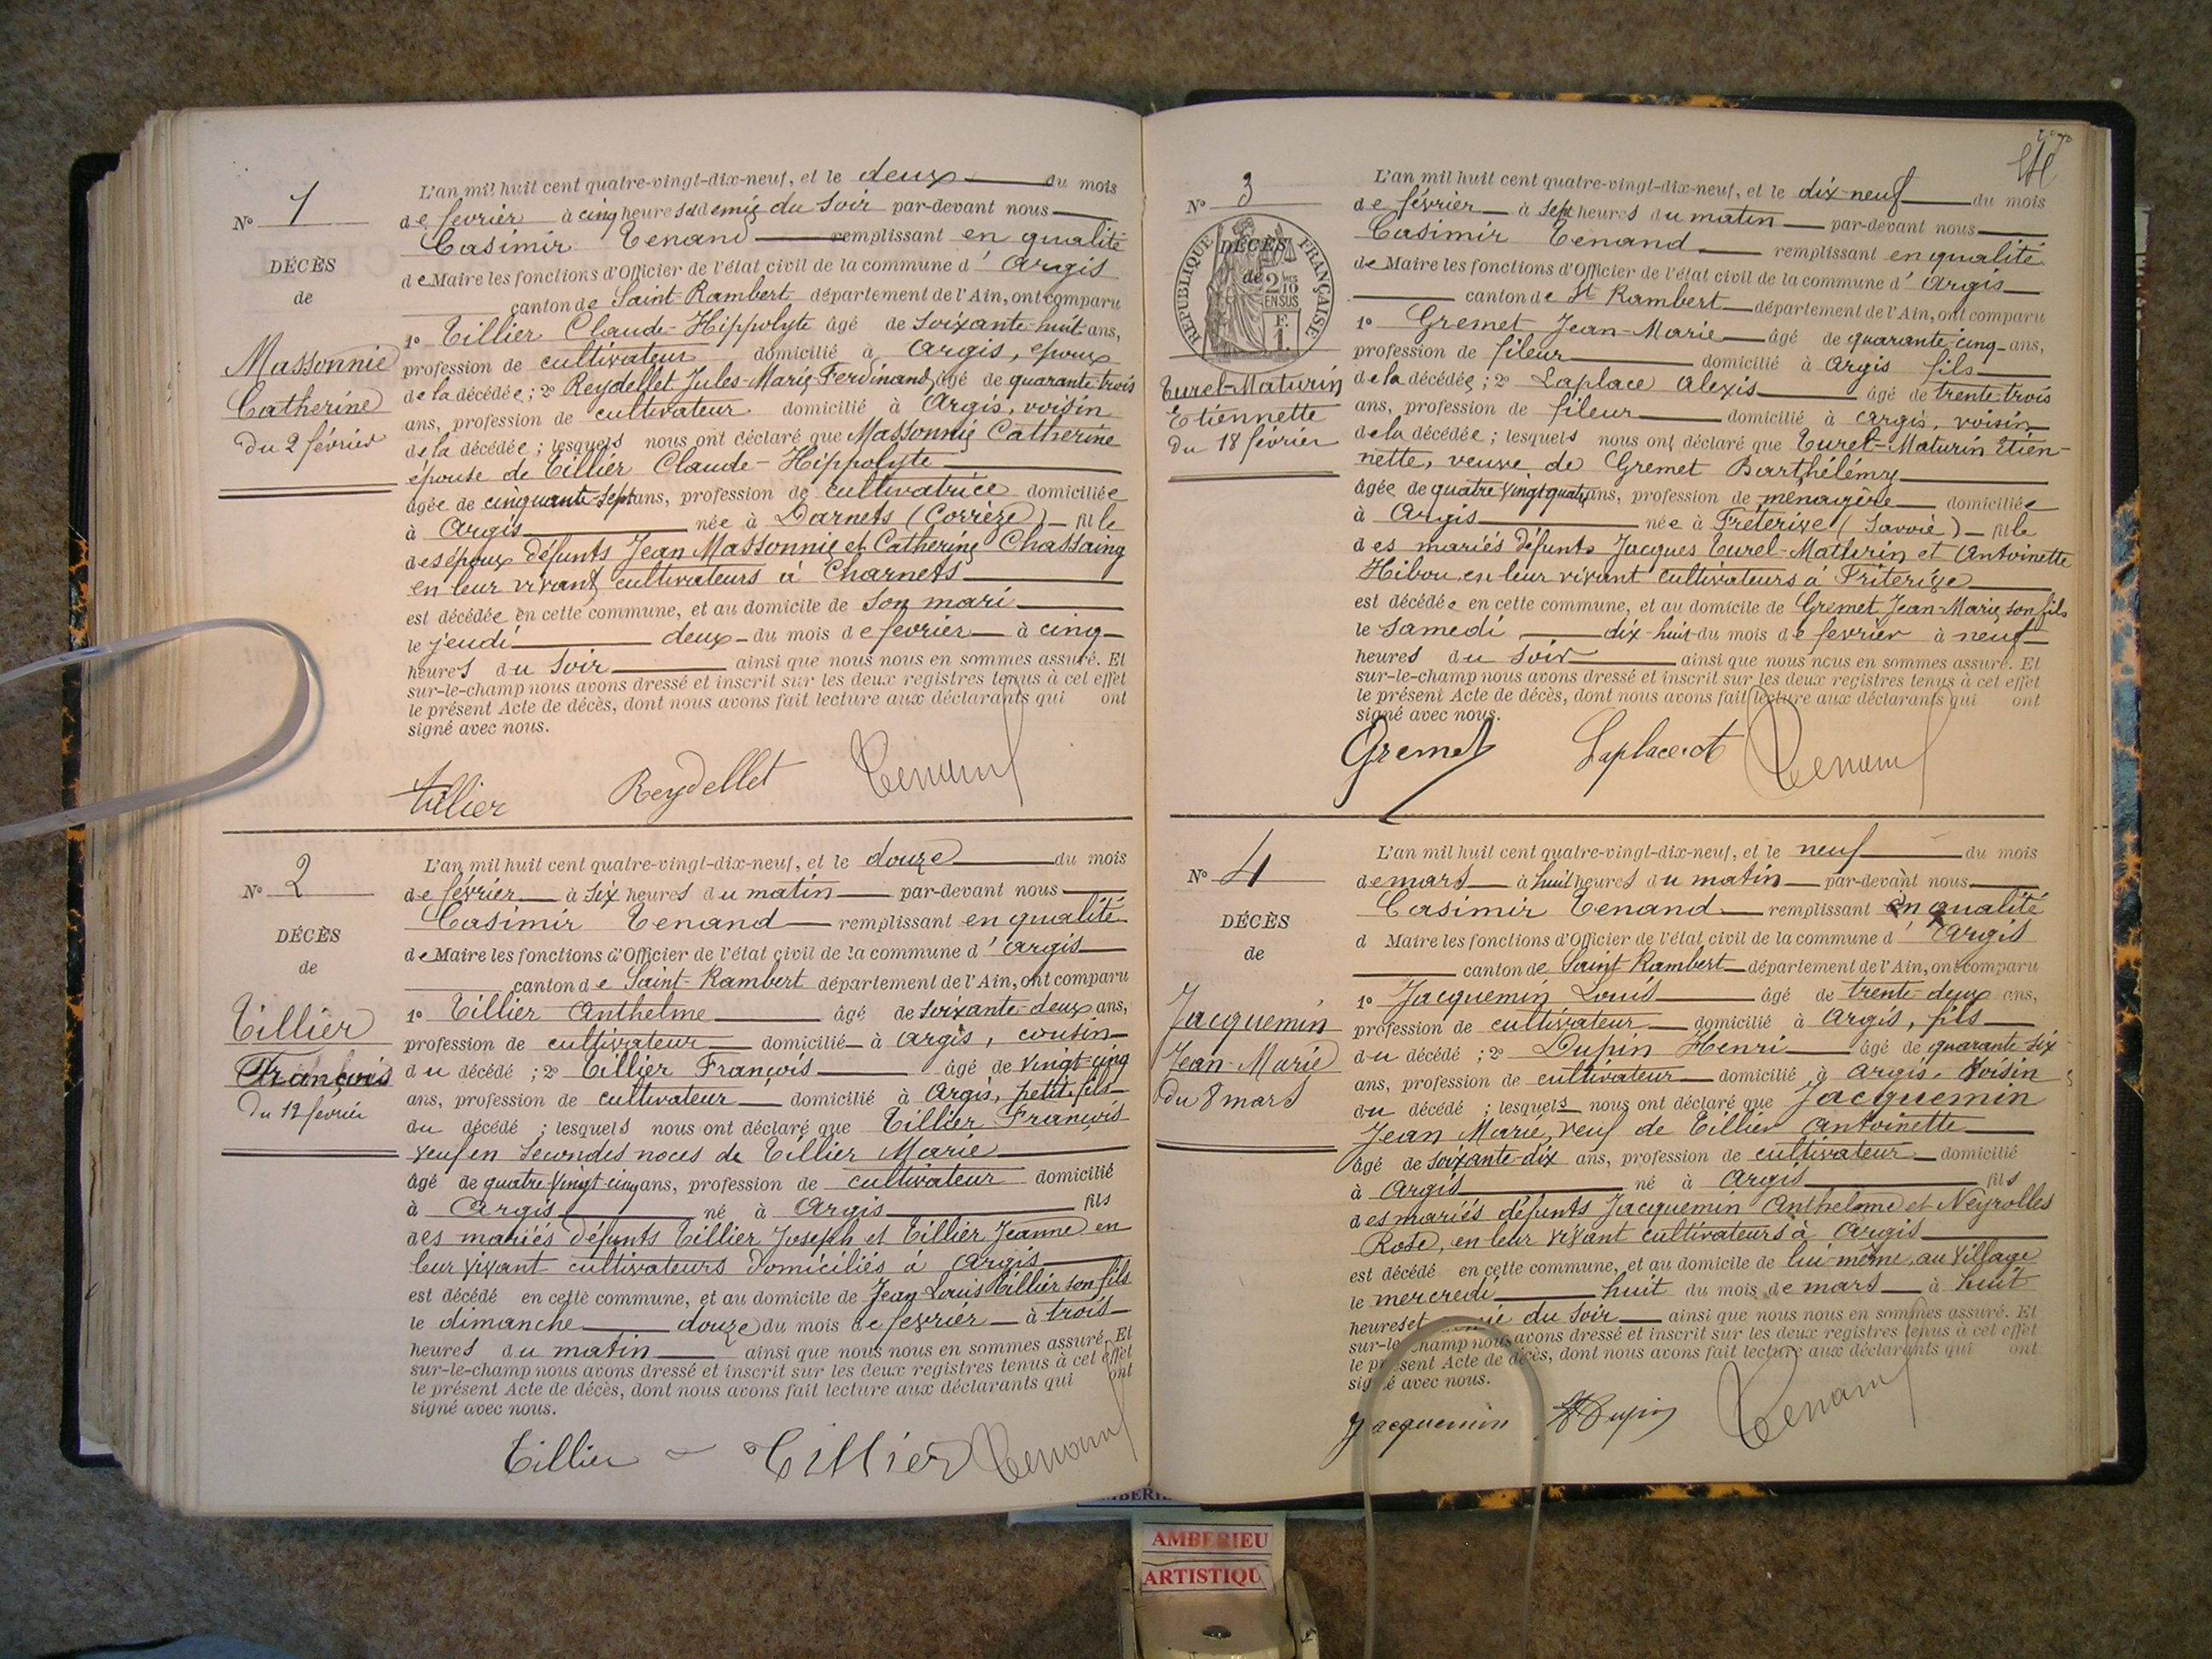 N° 1
DÉCÈS
de
Massonnie
Catherine
du 2 février
L'an mil huit cent quatre-vingt-dix-neuf, et le deux du mois
de février à cinq heures et demie du soir par-devant nous
Casimir Tenand remplissant en qualité
de Maire les fonctions d'Officier de l'état civil de la commune d' Argis
canton de Saint-Rambert département de l'Ain, ont comparu
1° Tillier Claude-Hippolyte âgé de soixante-huit ans,
profession de cultivateur domicilié à Argis, époux
de la décédée ; 2° Reydellet Jules-Marie-Ferdinand, âgé de quarante trois
ans, profession de cultivateur domicilié à Argis, voisin
de la décédée ; lesquels nous ont déclaré que Massonnie Catherine
épouse de Tillier Claude-Hippolyte
âgée de cinquante-sept ans, profession de cultivatrice domiciliée
à Argis née à Darnets (Corrèze) fille
des époux défunts Jean Massonnie et Catherine Chassaing
en leur vivant cultivateurs à Charnets
est décédée en cette commune, et au domicile de son mari
le jeudi deux du mois de février à cinq
heures du soir ainsi que nous nous en sommes assuré. Et
sur-le-champ nous avons dressé et inscrit sur les deux registres tenus à cet effet
le présent Acte de décès, dont nous avons fait lecture aux déclarants qui ont
signé avec nous.
Tillier Reydellet Tenand
N° 2
DÉCÈS
de
Tillier
François
Du 12 février
L'an mil huit cent quatre-vingt-dix-neuf, et le douze du mois
de février à six heures du matin par-devant nous
Casimir Tenand remplissant en qualité
de Maire les fonctions d'Officier de l'état civil de la commune d' Argis
canton de Saint-Rambert département de l'Ain, ont comparu
1° Tillier Anthelme âgé de soixante-deux ans,
profession de cultivateur domicilié à Argis, cousin
du décédé ; 2° Tillier François âgé de vingt-cinq
ans, profession de cultivateur domicilié à Argis, petit-fils
du décédé ; lesquels nous ont déclaré que Tillier François
veuf en secondes noces de Tillier Marie
âgé de quatre vingt-cinq ans, profession de cultivateur domicilié
à Argis né à Argis fils
des mariés défunts Tillier Joseph et Tillier Jeanne en
leur vivant cultivateurs domiciliés à Argis
est décédé en cette commune, et au domicile de Jean Louis Tillier son fils
le dimanche douze du mois de février à trois
heures du matin ainsi que nous nous en sommes assuré. Et
sur-le-champ nous avons dressé et inscrit sur les deux registres tenus à cet effet
le présent Acte de décès, dont nous avons fait lecture aux déclarants qui ont
signé avec nous.
Tillier Tillier Tenand
N° 3
RÉPUBLIQUE FRANÇAISE
DÉCÈS
de
2/10 EN SUS
Turel-Maturin
Etiennette
Du 18 février
L'an mil huit cent quatre-vingt-dix-neuf, et le dix-neuf du mois
de février à sept heures du matin par-devant nous
Casimir Tenand remplissant en qualité
de Maire les fonctions d'Officier de l'état civil de la commune d' Argis
canton de St Rambert département de l'Ain, ont comparu
1° Gremet Jean-Marie âgé de quarante-cinq ans,
profession de fileur domicilié à Argis fils
de la décédée ; 2° Laplace Alexis âgé de trente-trois
ans, profession de fileur domicilié à Argis, voisin
de la décédée ; lesquels nous ont déclaré que Turel-Maturin Etien-
nette, veuve de Gremet Barthélémy
âgée de quatre vingt quatre ans, profession de ménagère domiciliée
à Argis née à Fréterive (Savoie) fille
des mariés défunts Jacques Turel-Maturin et Antoinette
Hibou, en leur vivant cultivateurs à Friterive
est décédée en cette commune, et au domicile de Gremet Jean-Marie, son fils
le samedi dix-huit du mois de février à neuf
heures du soir ainsi que nous nous en sommes assuré. Et
sur-le-champ nous avons dressé et inscrit sur les deux registres tenus à cet effet
le présent Acte de décès, dont nous avons fait lecture aux déclarants qui ont
signé avec nous.
Gremet Laplace Tenand
N° 4
DÉCÈS
de
Jacquemin
Jean-Marie
Du 8 mars
L'an mil huit cent quatre-vingt-dix-neuf, et le neuf du mois
de mars à huit heures du matin par-devant nous
Casimir Tenand remplissant en qualité
d Maire les fonctions d'Officier de l'état civil de la commune d' Argis
canton de Saint Rambert département de l'Ain, ont comparu
1° Jacquemin Louis âgé de trente-deux ans,
profession de cultivateur domicilié à Argis, fils
du décédé ; 2° Dupin Henri âgé de quarante-six
ans, profession de cultivateur domicilié à Argis. Voisin
du décédé ; lesquels nous ont déclaré que Jacquemin
Jean Marie, veuf de Tillier Antoinette
âgé de soixante-dix ans, profession de cultivateur domicilié
à Argis né à Argis fils
des mariés défunts Jacquemin Anthelme et Neyrolles
Rose, en leur vivant cultivateurs à Argis
est décédé en cette commune, et au domicile de lui même, au village
le mercredi huit du mois de mars à huit
heures et du soir ainsi que nous nous en sommes assuré. Et
sur-le-champ nous avons dressé et inscrit sur les deux registres tenus à cet effet
le présent Acte de décès, dont nous avons fait lecture aux déclarants qui ont
signé avec nous.
Jacquemin H Dupin Tenand
AMBERIEU
ARTISTIQU